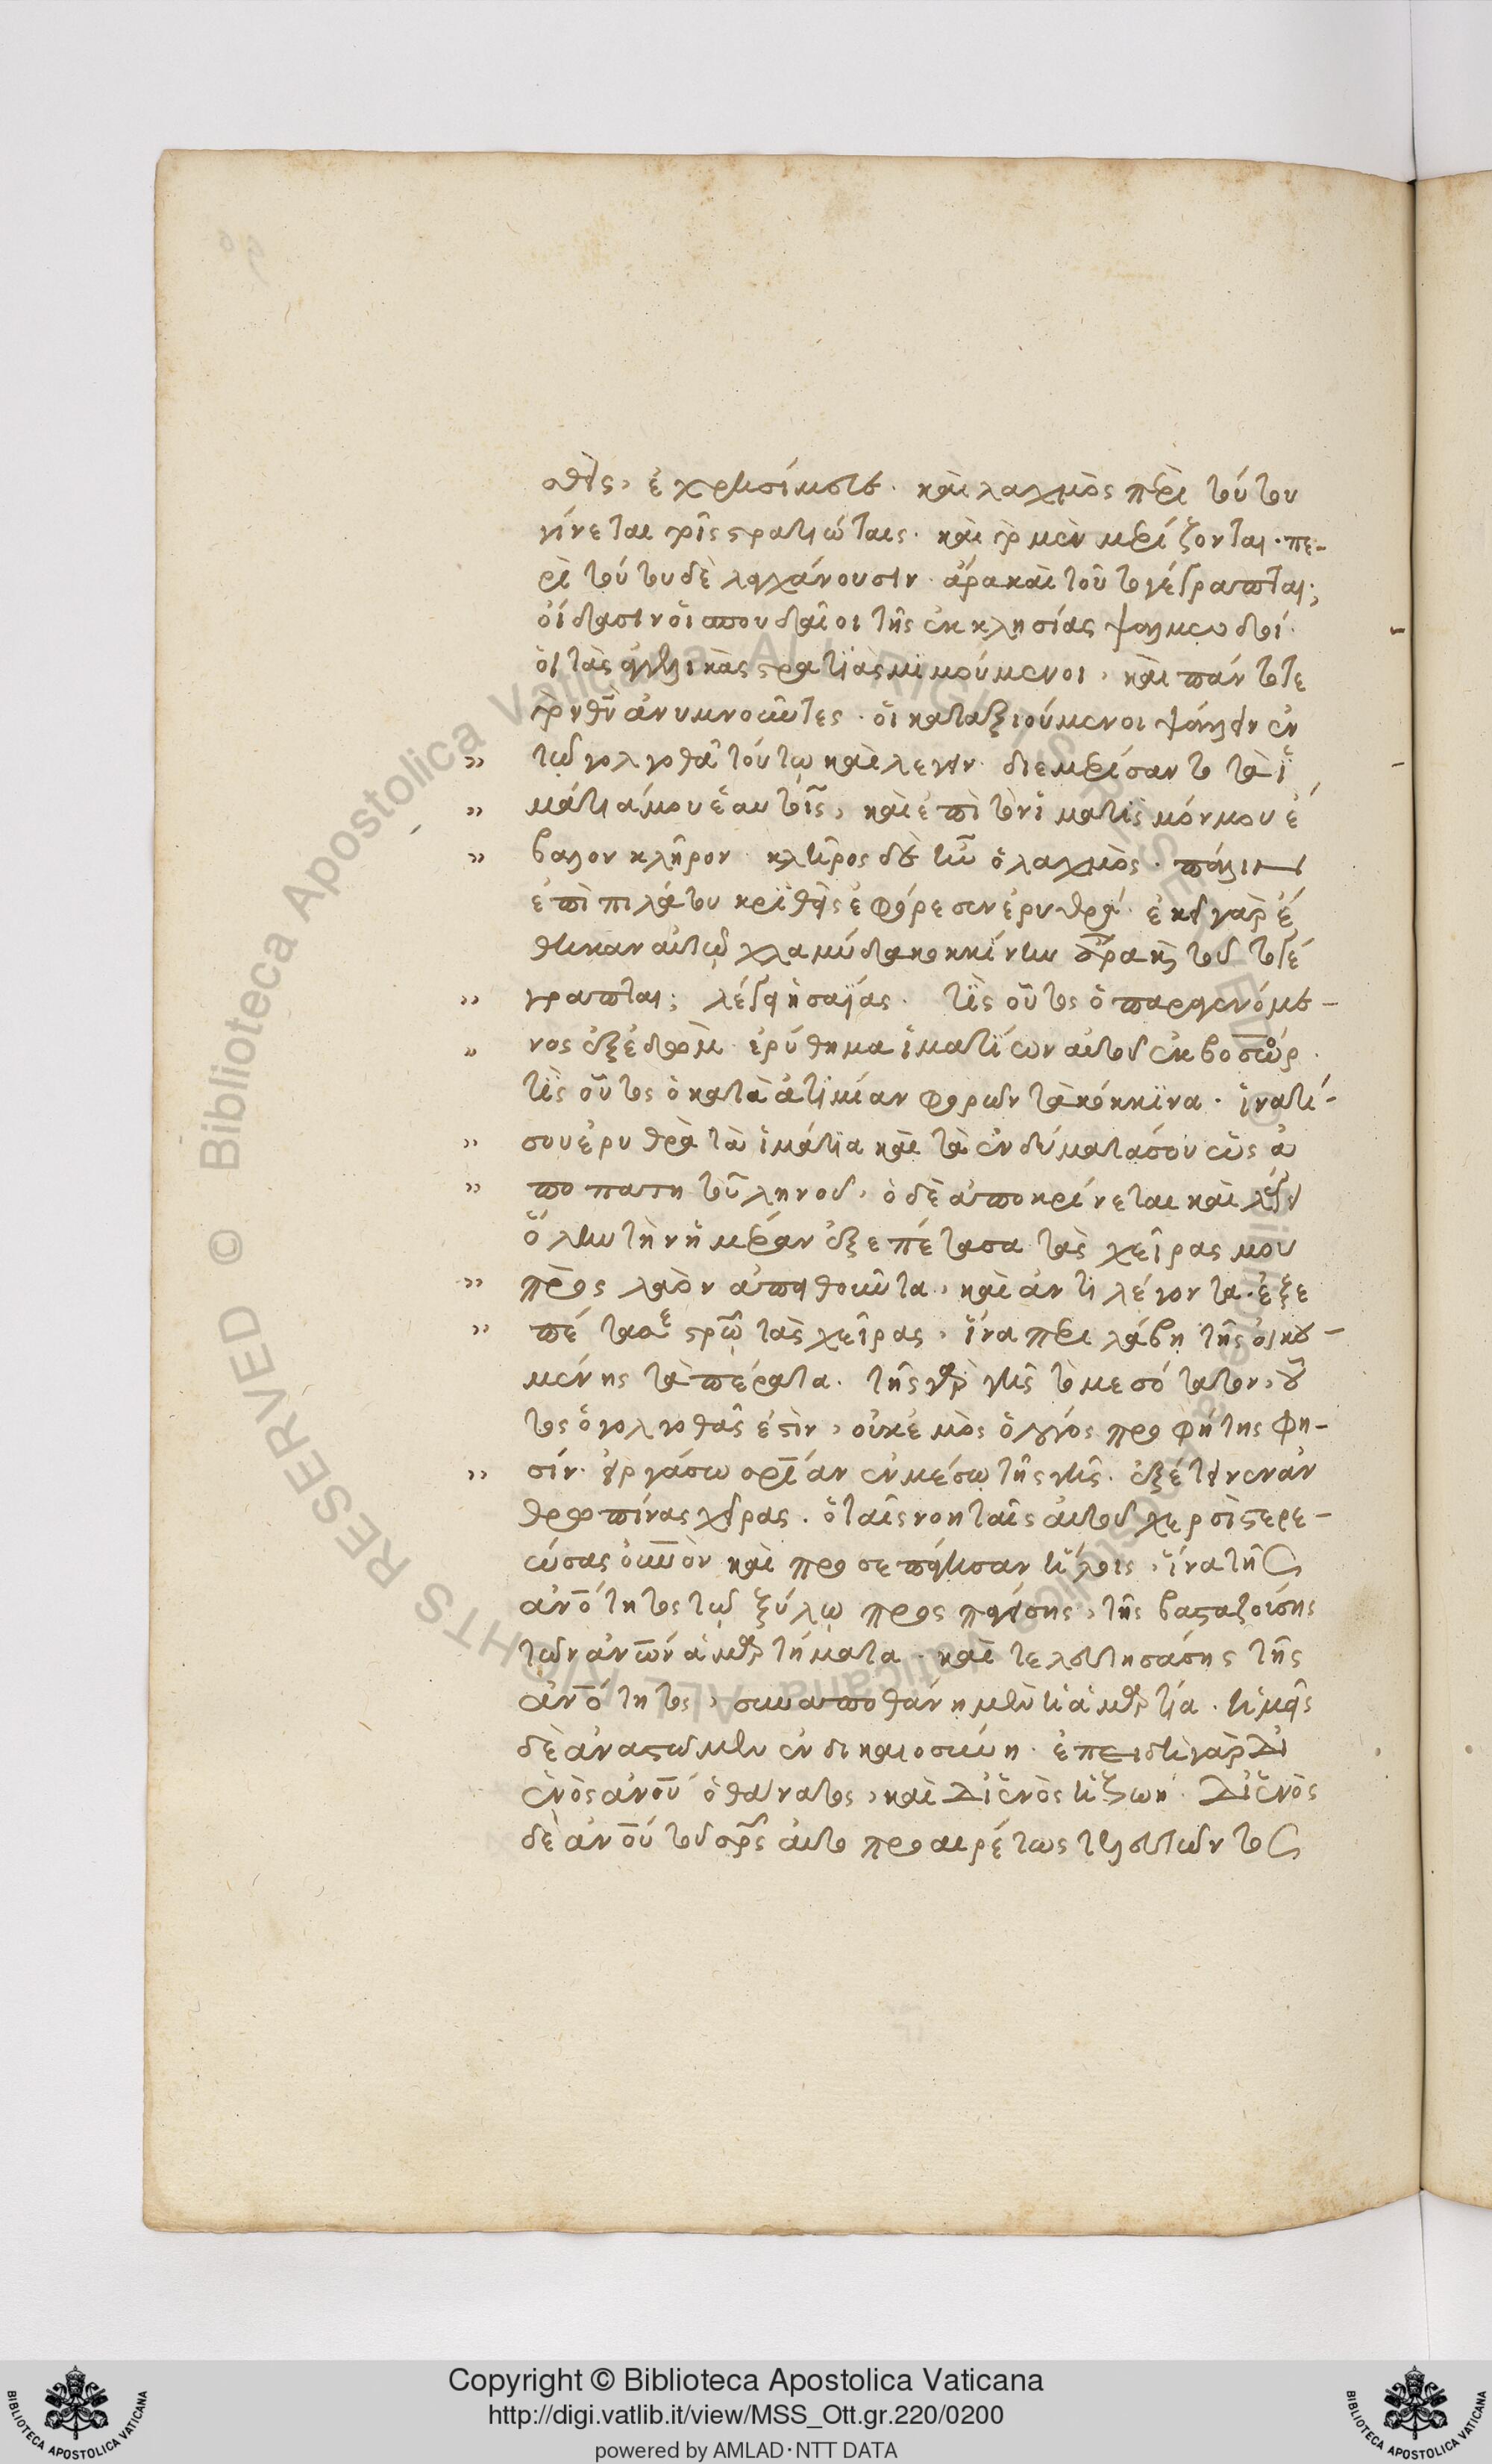 σθεὶς, ἐχρησίμευε. καὶ λαχμὸς περὶ τούτου
γίνεται τοῖς στρατιώταις. καὶ τὸ μὲν μερίζονται. πε-
ρὶ τούτου δὲ λαγχάνουσιν. ἆρα καὶ τοῦτο γέγραπται;
οἴδασιν οἱ σπουδαῖοι τῆς ἐκκλησίας ψαλμωδοί.
οἱ τὰς ἀγγελικὰς στρατιὰς μιμούμενοι, καὶ πάντοτε
τὸν θν ἀνυμνοῦντες. οἱ καταξιούμενοι ψάλλειν ἐν
" τῷ γολγοθᾶ τούτω καὶ λέγειν. διεμερίσαντο τὰ ἱ
" μάτιά μου ἑαυτοῖς, καὶ ἐπὶ τὸν ἱματισμόν μου ἔ
" βαλον κλῆρον. κλῆρος δὲ ἦν ὁ λαχμὸς. πάλιν
ἐπὶ πιλάτου κριθεὶς ἐφόρεσεν ἐρυθρά. ἐκεῖ γὰρ ἔ
θηκαν αὐτῷ χλαμύδα κοκκίνην ἆρα καὶ τοῦτο γέ
" γραπται; λέγει ἡσαΐας. τίς οὗτος ὁ παραγενόμε-
" νος ἐξ ἐδώμ. ἐρύθημα ἱματίων αὐτοῦ ἐκ βοσώρ.
τίς οὗτος ὁ κατὰ ἀτιμίαν φορῶν τὰ κόκκινα. ἱνατί-
" σου ἐρυθρὰ τὰ ἱμάτια καὶ τὰ ἐνδύματά σου ὡς ἀ
" πο πατητοῦ ληνοῦ, ὁ δὲ ἀποκρίνεται καὶ λέγει
ὅλην τὴν ἡμέραν ἐξεπέτασα τὰς χεῖρας μου
" πρὸς λαὸν ἀπειθοῦντα, καὶ ἀντιλέγοντα. ἐξε
" πέτασεν ἐν στρω τὰς χεῖρας, ἵνα περιλάβη τῆς οἰκου-
μένης τὰ πέρατα. τῆς γὰρ γῆς τὸ μεσότατον, οὗ
τος ὁ γολγοθᾶς ἐστὶν, οὐκ ἐμὸς ὁ λόγος προφήτης φη-
" σίν. εἰργάσω σρίαν ἐν μέσω τῆς γῆς. ἐξέτεινεν ἀν
θρωπίνας χεῖρας. ὁ ταῖς νοηταῖς αὐτοῦ χερσὶ στερε-
ώσας ουνὸν καὶ προσεπάγησαν ἥλοις, ἵνα τῆς
ἀνότητος τῷ ξύλω προσπαγείσης, τῆς βασταζούσης
τῶν ἀνων ἁμαρτήματα. καὶ τελευτησάσης τῆς
ἀνότητος, συναποθάνη μὲν ἡ ἁμαρτία. ἡμεῖς
δὲ ἀναστῶμεν ἐν δικαιοσύνη. ἐπειδὴ γὰρ δι
ἑνὸς ἀνου ὁ θάνατος, καὶ δι ἑνὸς ἡ ζωή. δι ἑνὸς
δὲ ἀνου τοῦ σρς αὐτο προαιρέτως τελευτῶντος